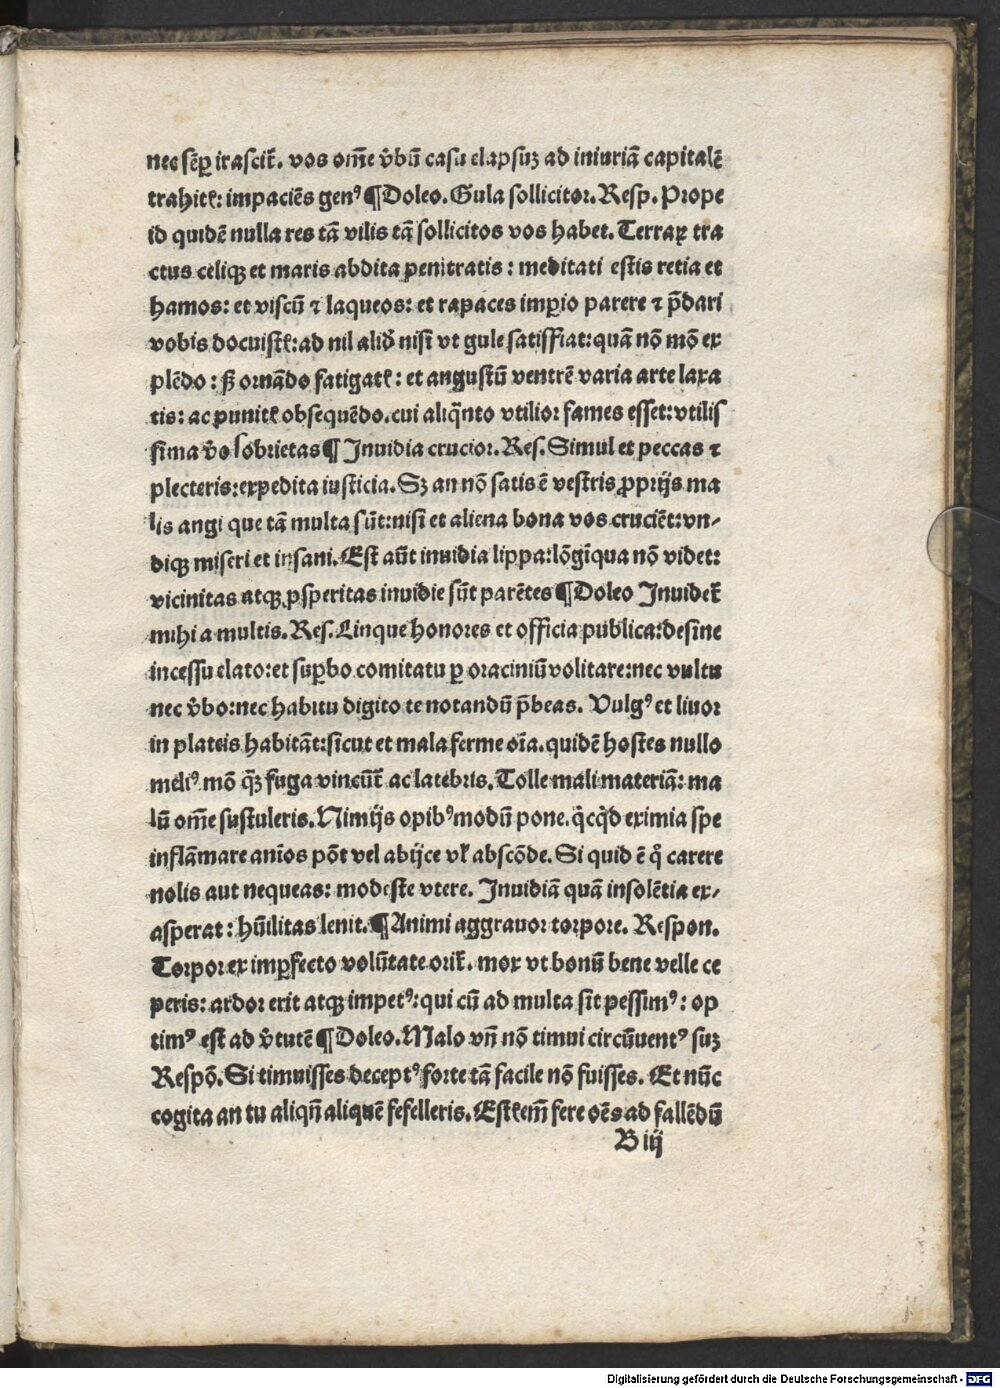 nec sēꝑ irascit᷑. vos om̄e v̄bū casu elapsuꝫ ad iniuriā capitalē
trahitꝭ: impaciēs genꝰ ¶Doleo. Gula sollicitor. Resp. Prope
id quidē nulla res tā vilis tā sollicitos vos habet. Terraꝝ tra
ctus celiqꝫ et maris abdita penitratis: meditati estis retia et
hamos: et viscū ⁊ laqueos: et rapaces imꝑio parere ⁊ p̄dari
vobis docuistꝭ: ad nil aliđ nisi vt gule satisffiat: quā nō mō ex
plēdo: sꝫ ornādo fatigatꝭ: et angustū ventrē varia arte laxa
tis: ac punitꝭ obsequēdo. cui aliq̄nto vtilior fames esset: vtilis
sima v̄o sobrietas ¶ Inuidia crucior. Res. Simul et peccas ⁊
plecteris: expedita iusticia. Sꝫ an nō satis ē vestris ꝓprijs ma
lis angi que tā multa sūt: nisi et aliena bona vos cruciēt: vn-
diqꝫ miseri et insani. Est aūt inuidia lippa: lōgīqua nō videt:
vicinitas atqꝫ ꝓsperitas inuidie sūt parētes ¶Doleo Inuidet᷑
mihi a multis. Res. Linque honores et officia publica: desine
incessu elato: et suꝑbo comitatu ꝑ oraciniū volitare: nec vultu
nec v̄bo: nec habitu digito te notandū p̄beas. Vulgꝰ et liuor
in plateis habitāt: sicut et mala ferme oīa. quidē hostes nullo
meliꝰ mō qꝫ̄ fuga vincūt᷑ ac latebris. Tolle mali materiā: ma
lū om̄e sustuleris. Nimijs opibꝰ modū pone. q̇cq̇d eximia spe
inflāmare anīos pōt vel abijce vl̓ abscōde. Si quid ē q̊ carere
nolis aut nequeas: modeste vtere. Inuidiā quā insolētia ex-
asperat: hūilitas lenit. ¶Animi aggrauor torpore. Respon.
Torpor ex imꝑfecto volūtate orit᷑. mox vt bonū bene velle ce
peris: ardor erit atqꝫ impetꝰ: qui cū ad multa sit pessimꝰ: op
timꝰ est ad v̄tutē ¶Doleo. Malo vn̄ nō timui circūuentꝰ suꝫ
Respō. Si timuisses deceptꝰ forte tā facile nō fuisses. Et nūc
cogita an tu aliqn̄ aliquē fefelleris. Estꝭ em̄ fere oēs ad fallēdū
B iij
Digitalisierung gefördert durch die Deutsche Forschungsgemeinschaft - DFG